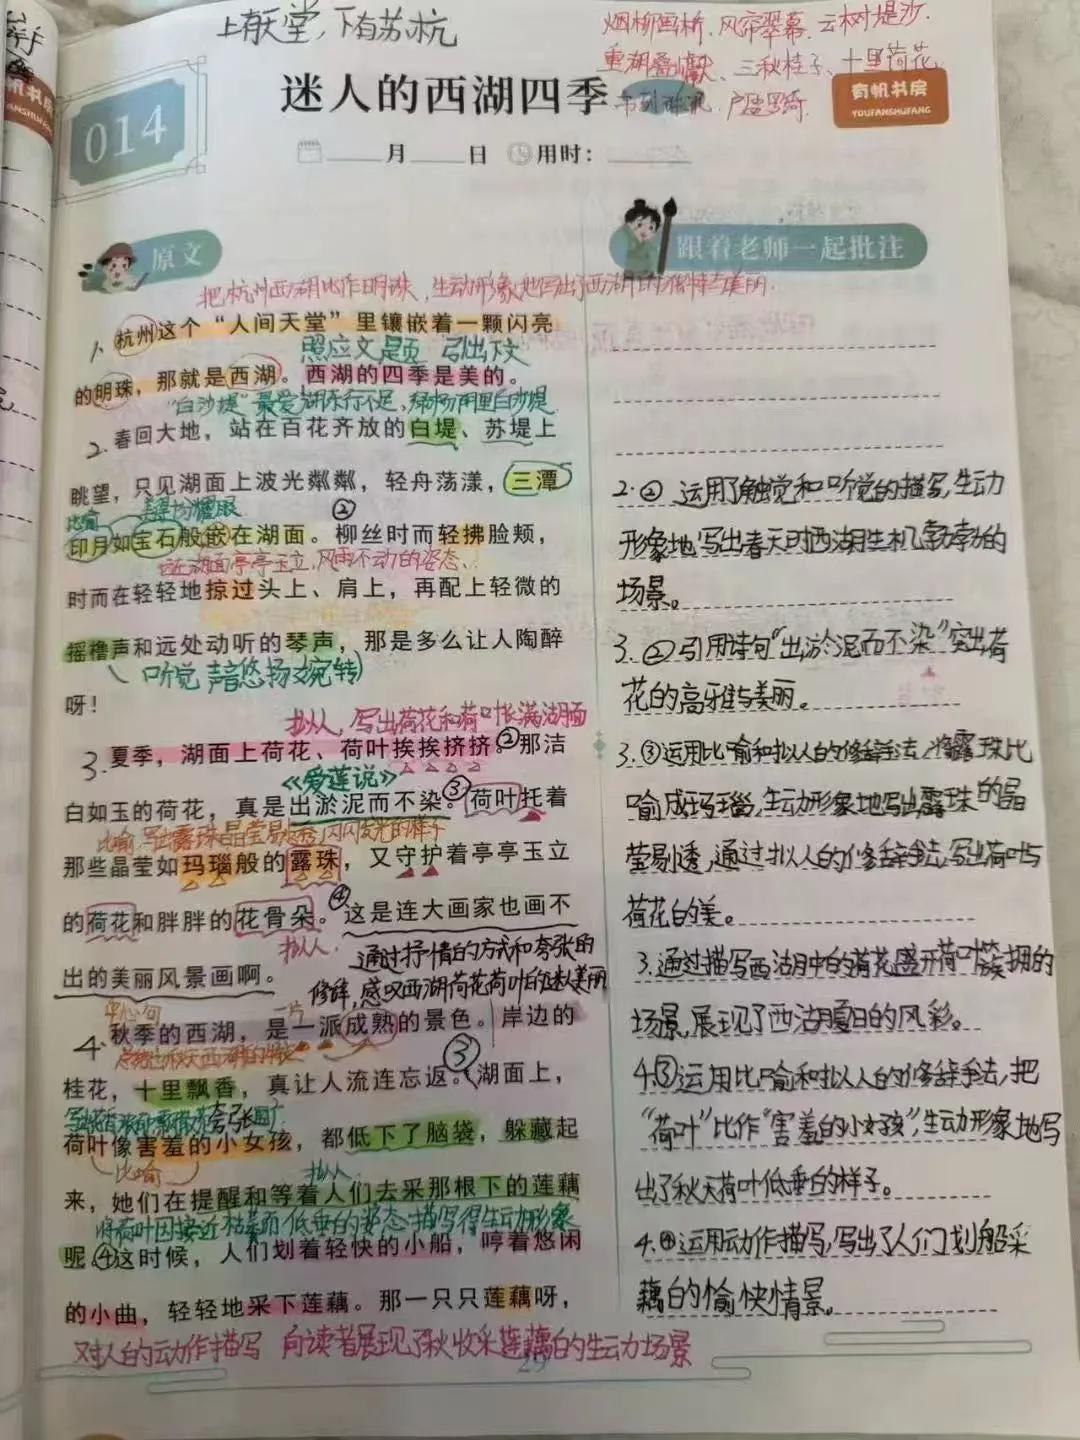 上有天堂，下有苏杭
烟柳画桥、风帘翠幕、云树堤沙、
重湖叠巘、三秋桂子、十里荷花、
市列珠玑、户盈罗绮
迷人的西湖四季
014
有帆书房
YOUFANSHUFANG
月 日 用时：
原文
跟着老师一起批注
把杭州西湖比作明珠，生动形象地写出了西湖的独特与美丽.
1、杭州这个“人间天堂”里镶嵌着一颗闪亮
照应文题 引出下文
的明珠，那就是西湖。西湖的四季是美的。
“白沙堤”最爱湖东行不足、绿杨阴里白沙堤
2. 春回大地，站在百花齐放的白堤、苏堤上
眺望，只见湖面上波光粼粼，轻舟荡漾，三潭
比喻
②
印月如宝石般嵌在湖面。柳丝时而轻拂脸颊，
湖面亭亭玉立，风雨不动的姿态、
时而在轻轻地掠过头上、肩上，再配上轻微的
摇橹声和远处动听的琴声，那是多么让人陶醉
听觉 声音悠扬婉转
呀！
拟人，写出荷花和荷叶长满湖面
3. 夏季，湖面上荷花、荷叶挨挨挤挤。②那洁
《爱莲说》
白如玉的荷花，真是出淤泥而不染。③荷叶托着
比喻，写出露珠晶莹易透，闪闪发光的样子
那些晶莹如玛瑙般的露珠，又守护着亭亭玉立
的荷花和胖胖的花骨朵。④这是连大画家也画不
拟人.
通过抒情的方式和夸张的
出的美丽风景画啊。
修辞，感叹西湖荷花荷叶的迷人美丽
中心句 一片
4、秋季的西湖，是一派成熟的景色。岸边的
③
桂花，十里飘香，真让人流连忘返。湖面上，
夸张
荷叶像害羞的小女孩，都低下了脑袋，躲藏起
比喻 拟人
来，她们在提醒和等着人们去采那根下的莲藕
将荷叶因接近枯萎而低垂的姿态描写得生动形象
呢④这时候，人们划着轻快的小船，哼着悠闲
的小曲，轻轻地采下莲藕。那一只只莲藕呀，
对人的动作描写 向读者展现了秋收采莲藕的生动场景
29
2.② 运用了触觉和听觉的描写，生动
形象地写出春天时西湖生机勃勃的
场景。
3.②引用诗句“出淤泥而不染”突出荷
花的高雅与美丽。
3.③运用比喻和拟人的修辞手法，将露珠比
喻成玛瑙，生动形象地写出露珠的晶
莹剔透，通过拟人的修辞手法，写出荷叶与
荷花的美。
3.通过描写西湖中的荷花盛开荷叶簇拥的
场景，展现了西湖夏日的风彩。
4.③运用比喻和拟人的修辞手法，把
“荷叶”比作“害羞的小女孩”，生动形象地写
出了秋天荷叶低垂的样子。
4.④运用动作描写，写出了人们划船采
藕的愉快情景。